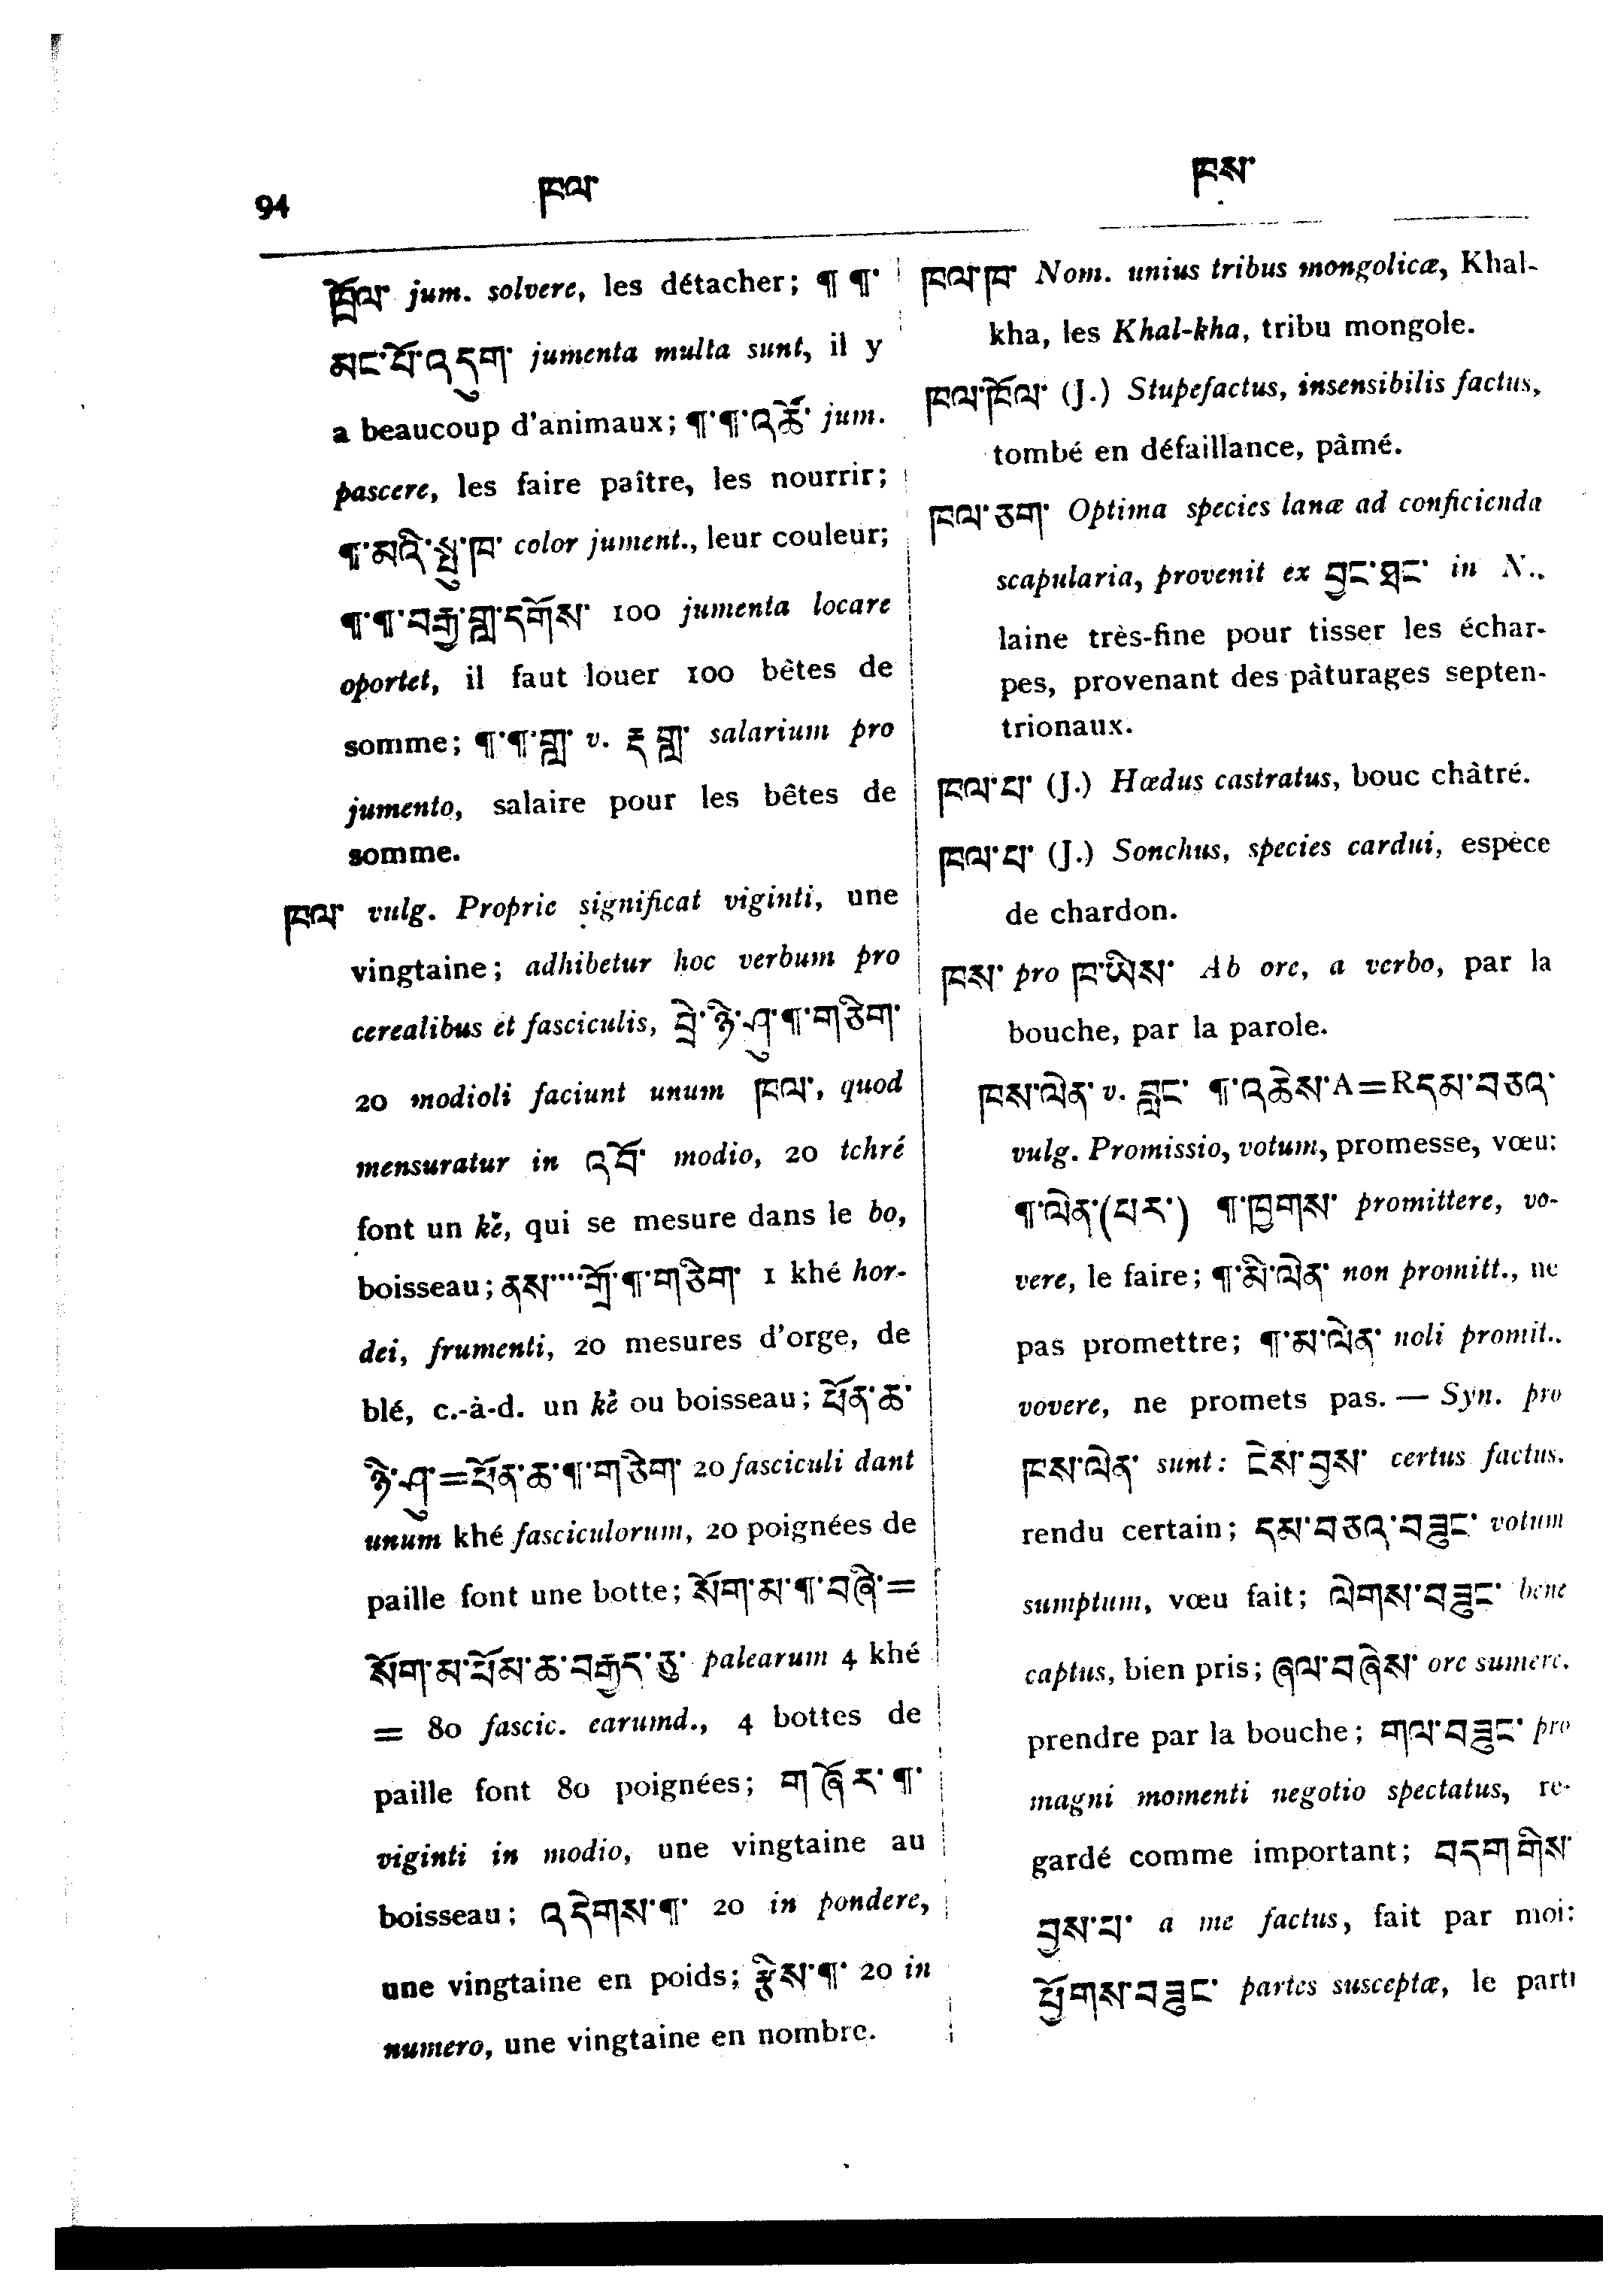 94
ཁལ་
ཁས་
ཁྲོལ་ jum. solvere, les détacher; ¶ ¶་
མང་པོ་འདུག་ jumenta multa sunt, il y
a beaucoup d'animaux; ¶་¶་འཚོ་ jum.
pascere, les faire paître, les nourrir;
¶་མའི་སྤུ་ཁ་ color jument., leur couleur;
¶་¶་བརྒྱ་གླ་དགོས་ 100 jumenta locare
oportet, il faut louer 100 bêtes de
somme; ¶་¶་གླ་ v. རྡ གླ་ salarium pro
jumento, salaire pour les bêtes de
somme.
ཁལ་ vulg. Proprie significat viginti, une
vingtaine; adhibetur hoc verbum pro
cerealibus et fasciculis, བྲེ་ཉི་ཤུ་¶་གཅིག་
20 modioli faciunt unum ཁལ་, quod
mensuratur in འབོ་ modio, 20 tchré
font un kě, qui se mesure dans le bo,
boisseau; ནས་་་་་གྲོ་¶་གཅིག་ 1 khé hor-
dei, frumenti, 20 mesures d'orge, de
blé, c.-à-d. un kě ou boisseau; ཕོན་ཆ་
ཉི་ཤུ་=ཕོན་ཆ་¶་གཅིག་ 20 fasciculi dant
unum khé fasciculorum, 20 poignées de
paille font une botte; སོག་མ་¶་བཞི་=
སོག་མ་ཕོམ་ཆ་བརྒྱད་ཅུ་ palearum 4 khé
= 80 fascic. earumd., 4 bottes de
paille font 80 poignées; ག ཞོར་¶་
viginti in modio, une vingtaine au
boisseau; འདེགས་¶་ 20 in pondere,
une vingtaine en poids; རྩིས་¶་ 20 in
numero, une vingtaine en nombre.
ཁལ་ཁ་ Nom. unius tribus mongolicæ, Khal-
kha, les Khal-kha, tribu mongole.
ཁལ་ཁོལ་ (J.) Stupefactus, insensibilis factus,
tombé en défaillance, pâmé.
ཁལ་ཅག་ Optima species lanæ ad conficienda
scapularia, provenit ex བྱང་ཐང་ in N.,
laine très-fine pour tisser les échar-
pes, provenant des pàturages septen-
trionaux.
ཁལ་པ་ (J.) Hœdus castratus, bouc châtré.
ཁལ་པ་ (J.) Sonchus, species cardui, espèce
de chardon.
ཁས་ pro ཁ་ཡིས་ Ab ore, a verbo, par la
bouche, par la parole.
ཁས་ལེན་ v. བླང་ ¶་འཆེས་A=Rདམ་བཅའ་
vulg. Promissio, votum, promesse, vœu:
¶་ལེན་(པར་) ¶་ཁྱགས་ promittere, vo-
vere, le faire; ¶་མི་ལེན་ non promitt., ne
pas promettre; ¶་མ་ལེན་ noli promit.,
vovere, ne promets pas. — Syn. pro
ཁས་ལེན་ sunt: ངེས་བྱས་ certus factus.
rendu certain; དམ་བཅའ་བཟུང་ votum
sumptum, vœu fait; ལེགས་བཟུང་ bene
captus, bien pris; ཞལ་བཞེས་ ore sumere.
prendre par la bouche; གལ་བཟུང་ pro
magni momenti negotio spectatus, re-
gardé comme important; བདག གིས་
བྱས་པ་ a me factus, fait par moi:
ཕྱོགས་བཟུང་ partes susceptæ, le parti